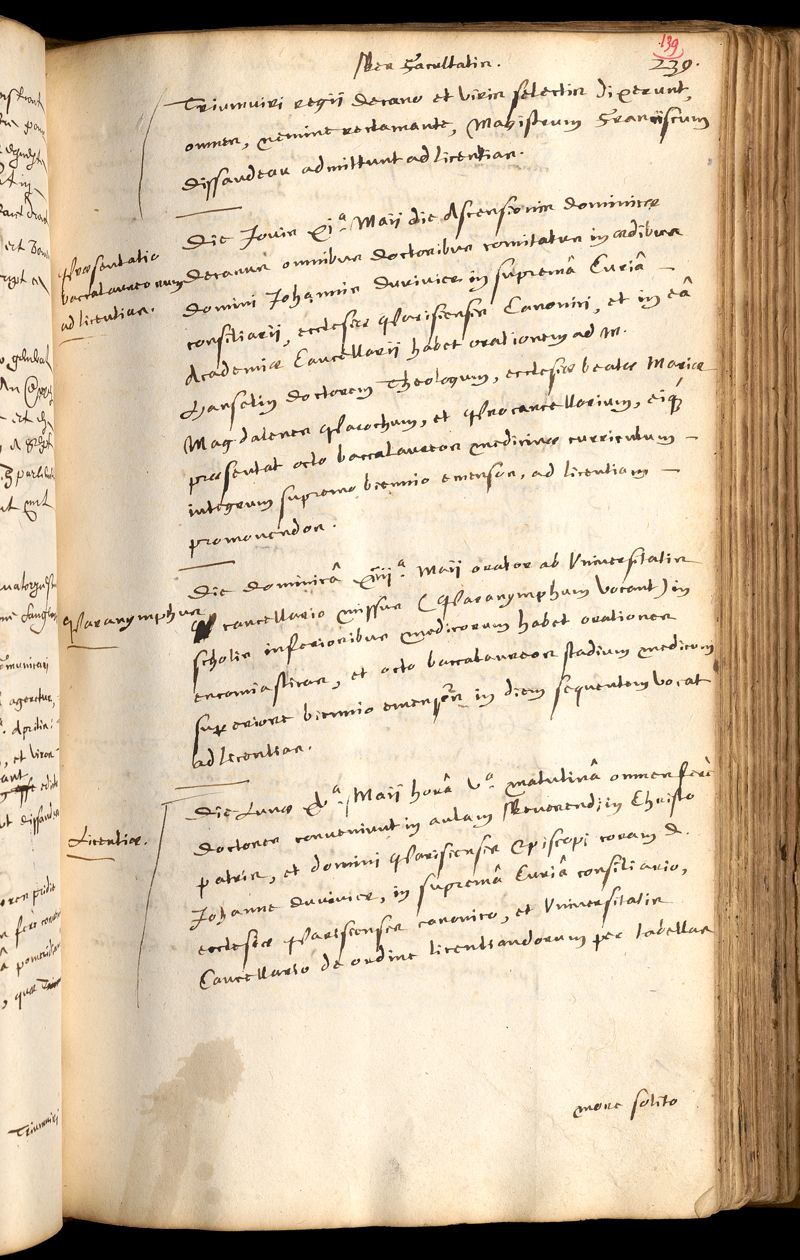 139
Res Facultatis.
239.
Triumviri regii decano et viris selectis dixerunt,
omnes, nemine reclamante, Magistrum Franciscum
dissaudeau admittunt ad licentias.
Praesentatio
baccalaureorum
ad licentias.
Die Jovis xiª Maii die Ascensionis dominicae
decanus omnibus doctoribus comitatus in aedibus
domini Johannis duvivier in supremâ Curiâ
consiliarii, ecclesiae Parisiensis Canonici, et in eâ
Academiâ Cancellarii habet orationem ad M.
Hanselin doctorem Theologum, ecclesiae beatae Mariae
Magdalenes Parochum, et Procancellarium, eiq́
praesentat octo baccalaureos medicinae curriculum
integrum supremo biennio emensos, ad licentiam
promovendos.
Paranymphus
Die dominicâ xiiiiª Maii orator ab Universitatis
cancellario missus (Paranymphum vocant) in
scholis inferioribus medicorum habet orationes
encomiasticas, et octo baccalaureos stadium medicum
superiore biennio emensos in diem sequentem vocat
ad licentias.
Licentiae.
Die Lunae xvª Maii horâ vª matutinâ omnes ferè
doctores conveniunt in aulam Reverendi in Christo
patris, et domini Parisiensis Episcopi coram d.
Johanne duvivier, in supremâ Curiâ consiliario,
ecclesiae Parisiensis canonico, et Universitatis
Cancellario de ordine licentiandorum per tabellas
more solito